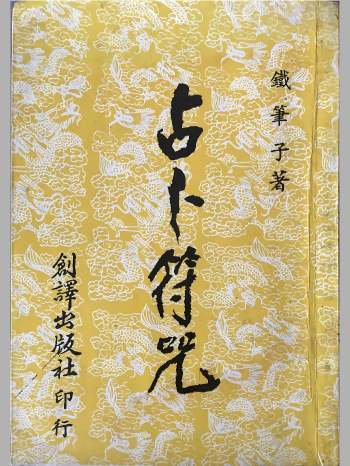 鐵筆子著
占卜符咒
創譯出版社印行